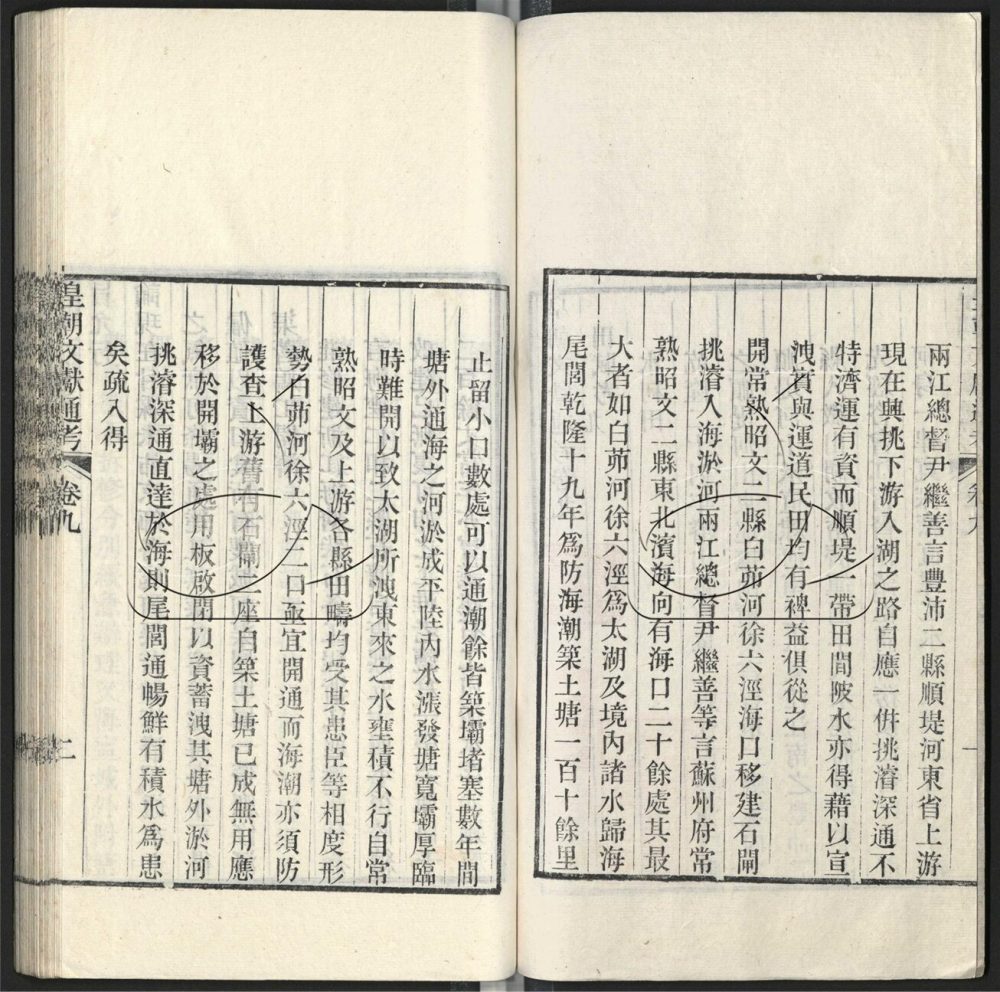 兩江總督尹繼善言豐沛二縣順堤河東省上游
現在興挑下游入湖之路自應一併挑濬深通不
特濟運有資而順堤一帶田間陂水亦得藉以宣
洩實與運道民田均有裨益俱從之
開常熟昭文二縣白茆河徐六涇海口移建石閘
挑濬入海淤河兩江總督尹繼善等言蘇州府常
熟昭文二縣東北濱海向有海口二十餘處其最
大者如白茆河徐六涇為太湖及境內諸水歸海
尾閭乾隆十九年為防海潮築土塘一百十餘里
止留小口數處可以通潮餘皆築壩堵塞數年間
塘外通海之河淤成平陸內水漲發塘寬壩厚臨
時難開以致太湖所洩東來之水壅積不行自常
熟昭文及上游各縣田疇均受其患臣等相度形
勢白茆河徐六涇二口亟宜開通而海潮亦須防
護查上游舊有石閘二座自築土塘已成無用應
移於開壩之處用板啟閉以資蓄洩其塘外淤河
挑濬深通直達於海則尾閭通暢鮮有積水為患
矣疏入得
皇朝文獻通考 卷九 二